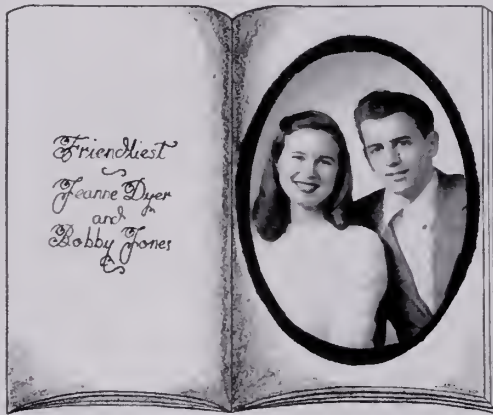 Friendliest
Jeanne Dyer
and
Bobby Jones